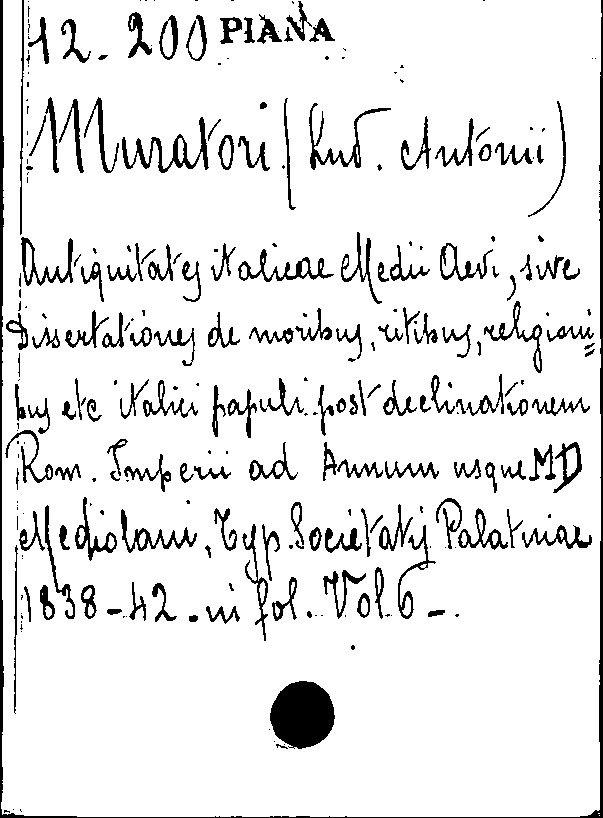 12. 200 PIANA
Muratori (Lud. Antonii)
Antiquitates italicae Medii Aevi, sive
Dissertationes de moribus, ritibus, religioni=
bus etc italici papuli post declinationem
Rom. Imperii ad Annum usque MD
Mediolani, Typ. Societatis Palatinae
1838-42 - in fol. Vol. 6 -.